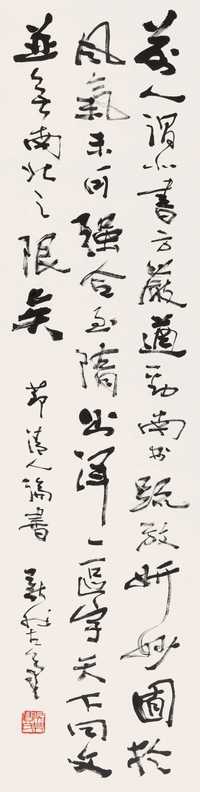 前人謂北書方嚴遒勁南書疏放妍妙囿於
風氣未可強合至隋出渾一區宇天下同文
並無南北之限矣
節清人論書